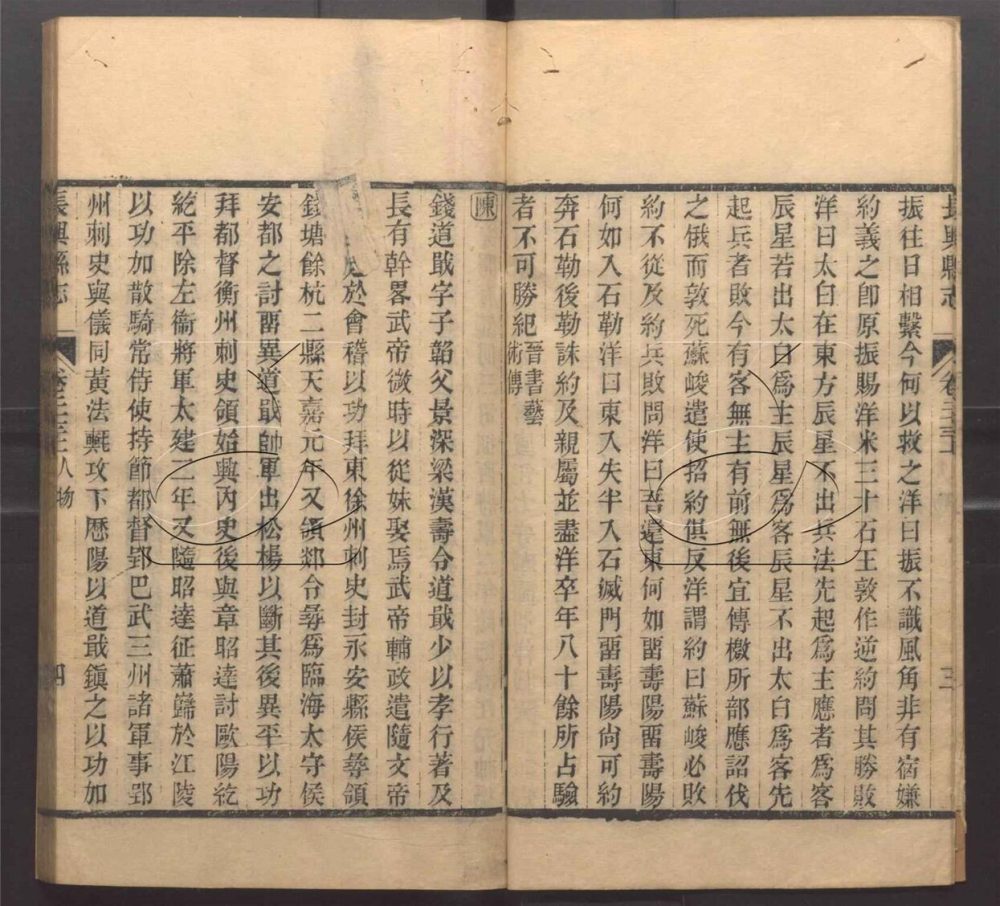 長興縣志 卷二十二 三
振往日相繫今何以救之洋曰振不識風角非有宿嫌
約義之卽原振賜洋米三十石王敦作逆約問其勝敗
洋曰太白在東方辰星不出兵法先起爲主應者爲客
辰星若出太白爲主辰星爲客辰星不出太白爲客先
起兵者敗今有客無主有前無後宜傳檄所部應詔伐
之俄而敦死蘇峻遣使招約俱反洋謂約曰蘇峻必敗
約不從及約兵敗問洋曰吾還東何如畱壽陽畱壽陽
何如入石勒洋曰東入失半入石滅門畱壽陽尙可約
奔石勒後勒誅約及親屬並盡洋卒年八十餘所占驗
者不可勝紀晉書藝
術傳
陳
錢道戢字子韜父景深梁漢壽令道戢少以孝行著及
長有幹畧武帝微時以從妹娶焉武帝輔政遣隨文帝
於會稽以功拜東徐州刺史封永安縣侯尋領
錢塘餘杭二縣天嘉元年又領剡令尋爲臨海太守侯
安都之討畱異道戢帥軍出松楊以斷其後異平以功
拜都督衡州刺史領始興內史後與章昭達討歐陽紇
紇平除左衞將軍太建二年又隨昭達征蕭巋於江陵
以功加散騎常侍使持節都督郢巴武三州諸軍事郢
州刺史與儀同黃法𣰰攻下歷陽以道戢鎭之以功加
長興縣志 卷二十二 人物 四